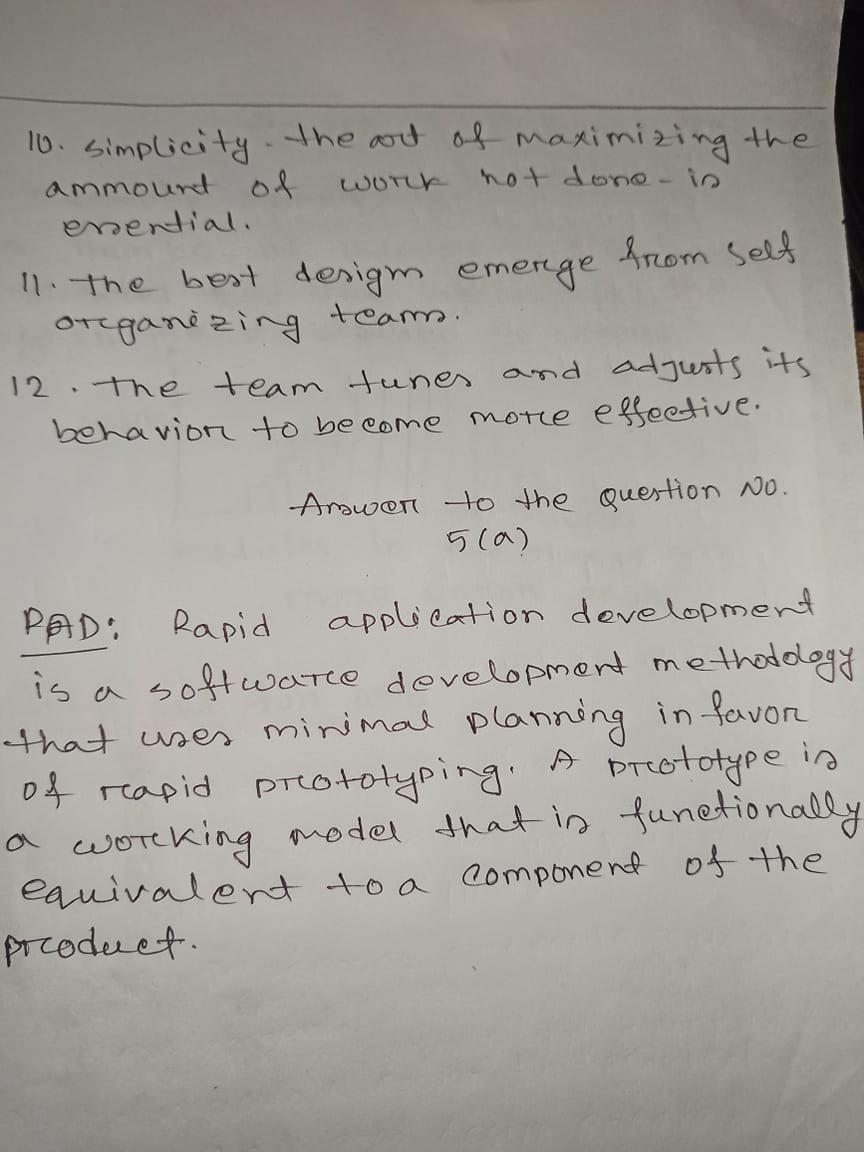 10. simplicity - the art of maximizing the
ammount of work not done - is
essential.
11. the best design emerge from self
organizing teams.
12. The team tunes and adjusts its
behavior to become more effective.
Answer to the question No.
5(a)
RAD: Rapid application development
is a software development methodology
that uses minimal planning in favor
of rapid prototyping. A prototype is
a working model that is functionally
equivalent to a component of the
product.